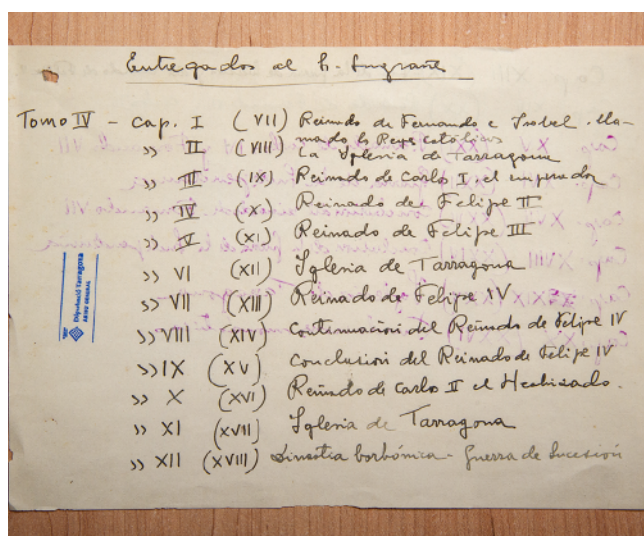 Entregados al h. Sugrañes
Tomo IV - cap. I (VII) Reinado de Fernando e Isabel. lla-
mado ls Reyes católicos
» II (VIII) La Iglesia de Tarragona
» III (IX) Reinado de Carlo I el emperador
» IV (X) Reinado de Felipe II
» V (XI) Reinado de Felipe III
» VI (XII) Iglesia de Tarragona
» VII (XIII) Reinado de Felipe IV
» VIII (XIV) Continuación del Reinado de Felipe IV
» IX (XV) Conclusión del Reinado de Felipe IV
» X (XVI) Reinado de Carlo II el Hechizado.
» XI (XVII) Iglesia de Tarragona
» XII (XVIII) Dinastia borbónica - Guerra de Sucesión
Diputació Tarragona
ARXIU GENERAL